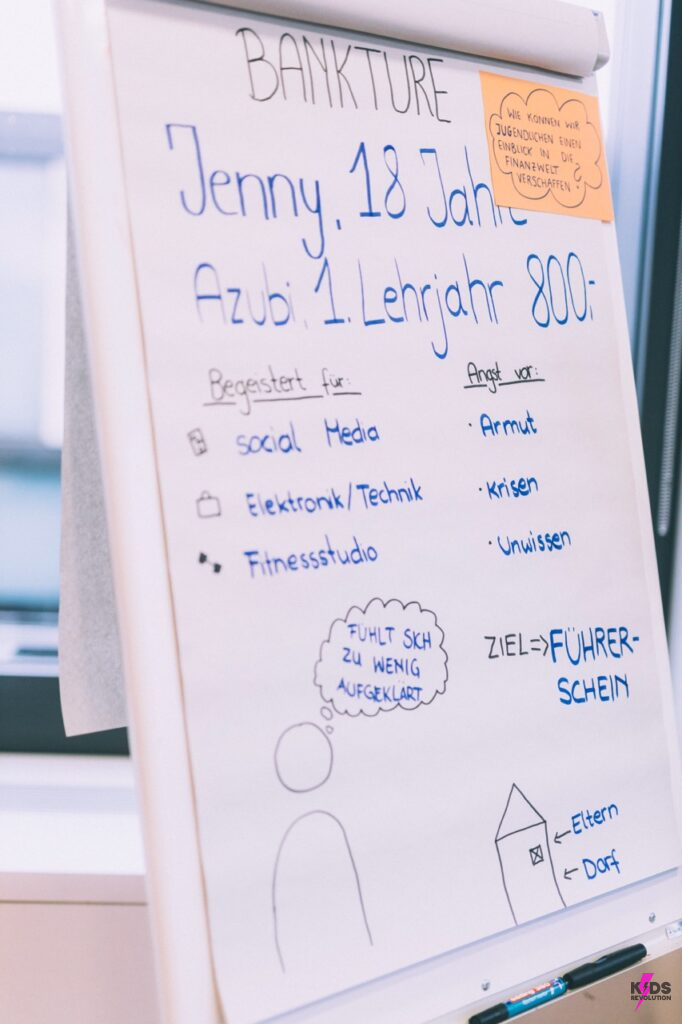 BANKTURE
WIE KÖNNEN WIR
JUGENDLICHEN EINEN
EINBLICK IN DIE
FINANZWELT
VERSCHAFFEN?
Jenny, 18 Jahre
Azubi, 1. Lehrjahr 800,-
Begeistert für:
social Media
Elektronik/Technik
Fitnessstudio
Angst vor:
· Armut
· Krisen
· Unwissen
FÜHLT SICH
ZU WENIG
AUFGEKLÄRT
ZIEL=>FÜHRER-
SCHEIN
← Eltern
← Dorf
KIDS
REVOLUTION